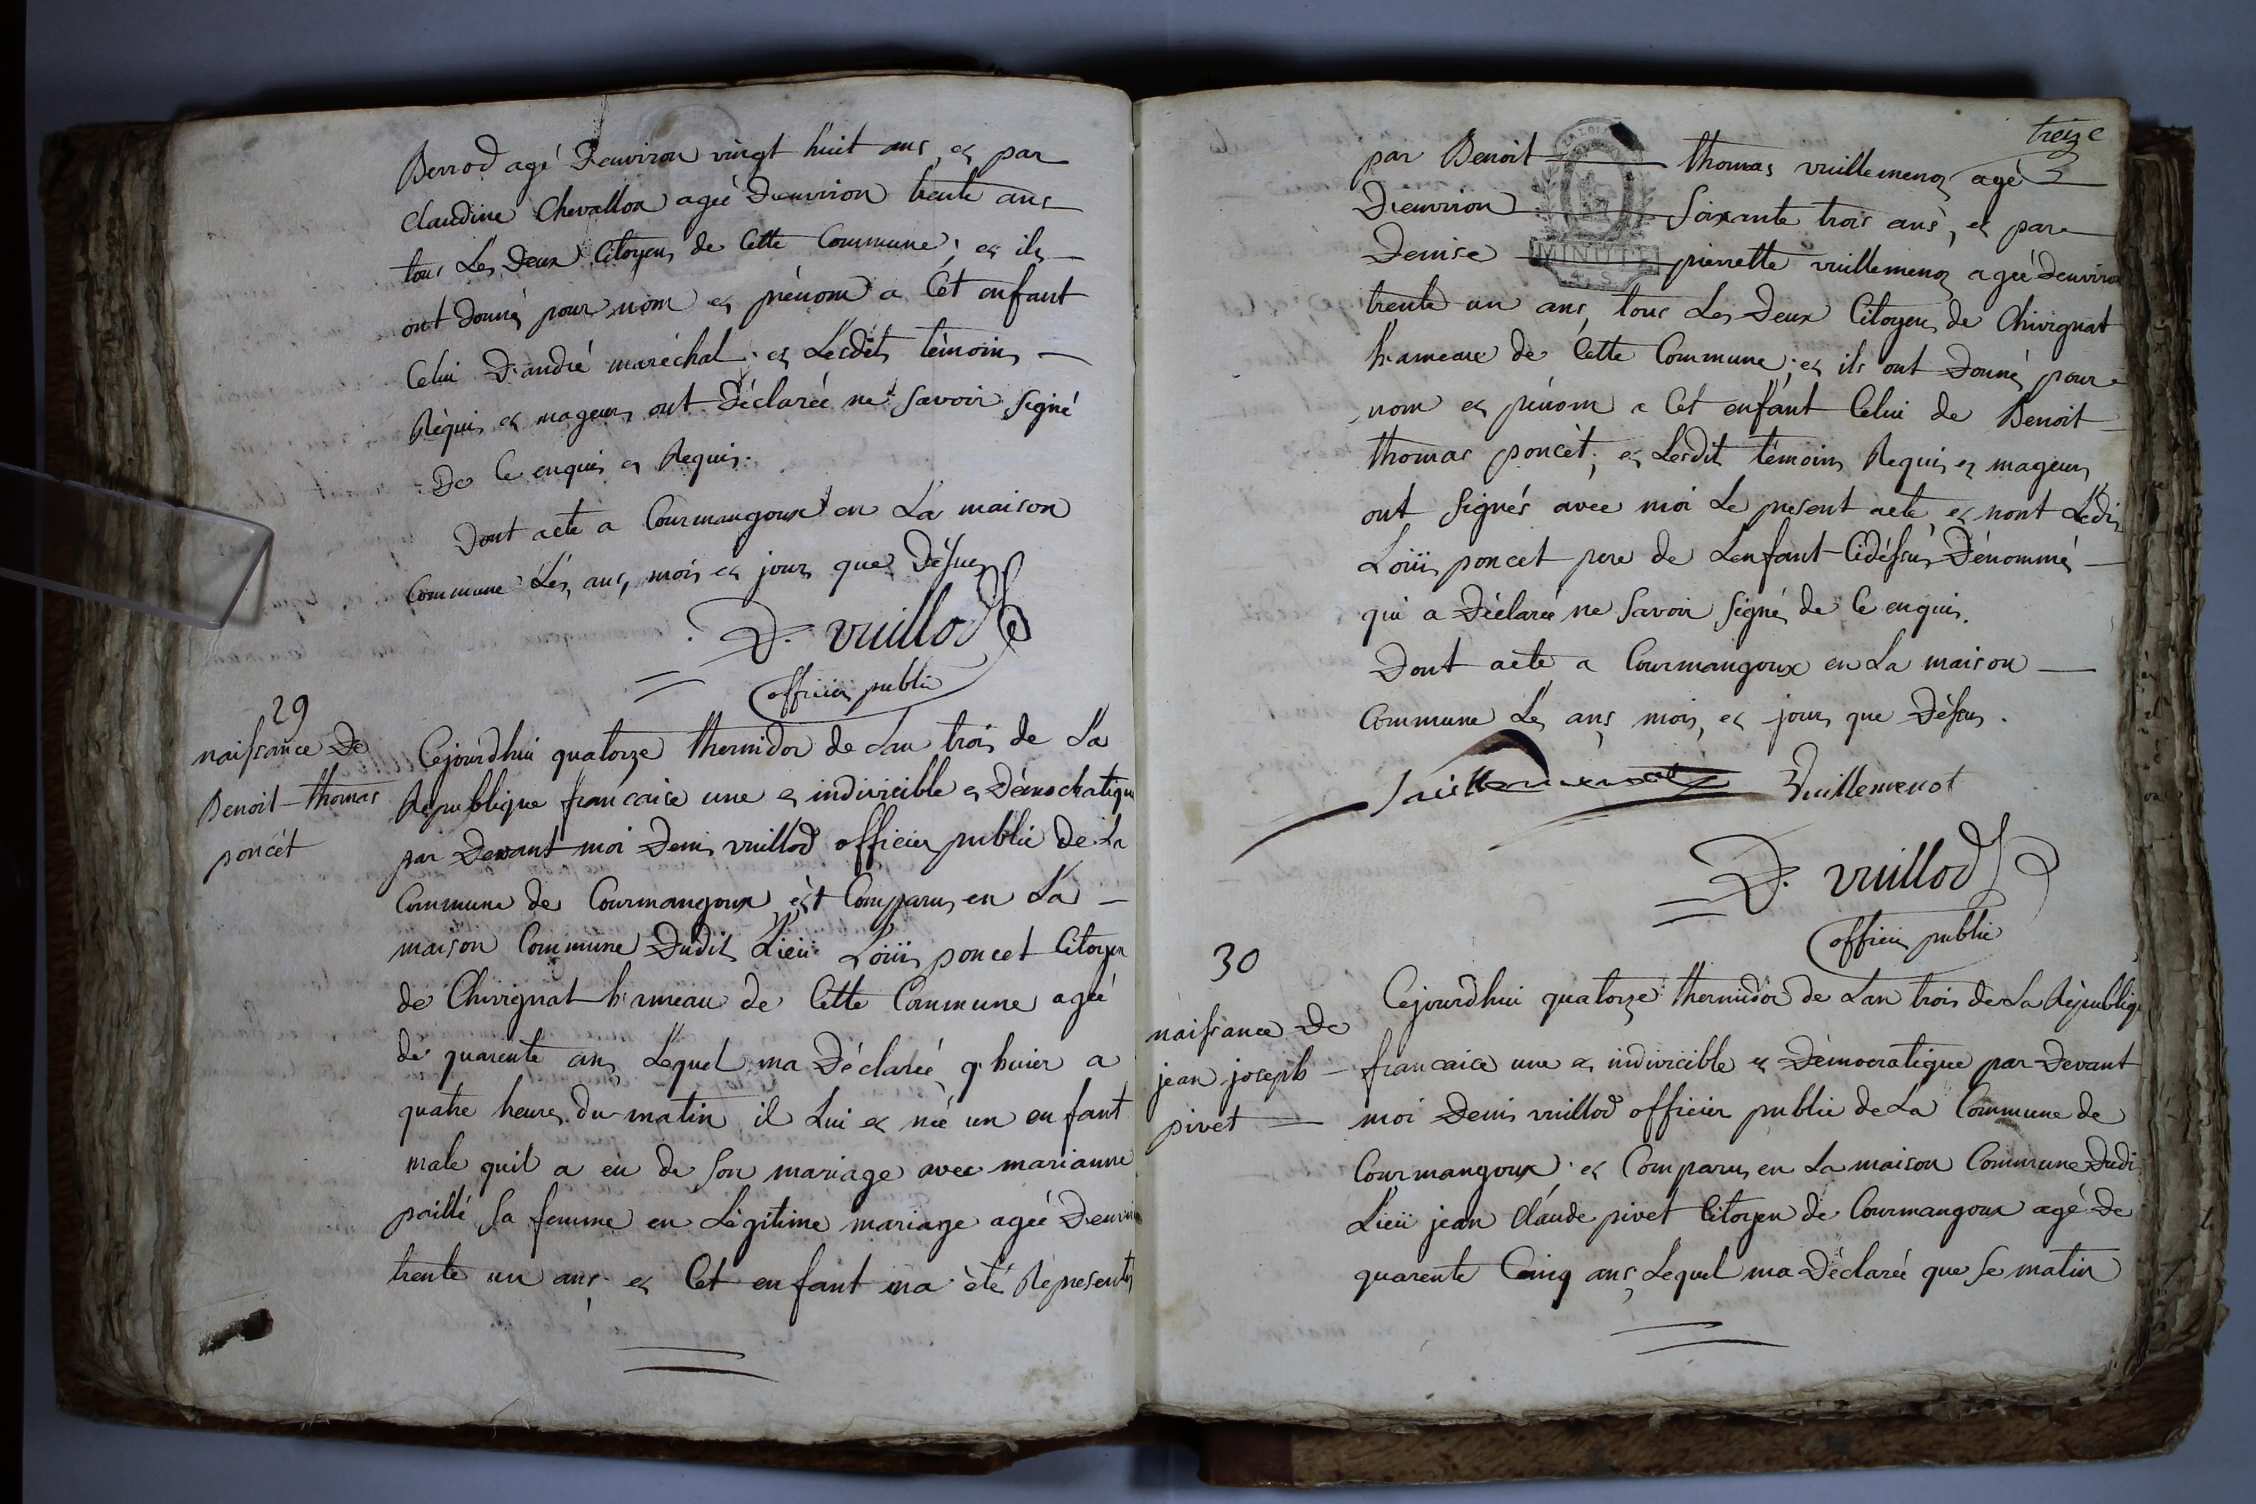 Berrod agé Denviron vingt huit ans, et par
claudine Chevallon ageé Denviron trente ans
tous Les Deux Citoyens de Cette Commune; et ils
ont Donnés pour nom et prénom a Cét enfant
Celui D'andré maréchal; et Lesdits témoins
Réquis et mageurs ont Déclareé ne savoir signé
De Ce enquis et Requis.
Dont acte a Courmangoux en La maison
Commune Lés ans, mois et jours que Déssus
D. vuillod
officier public
29
naissance De
Benoit-thomas
poncét
Cejourdhui quatorze thermidor de Lan trois de La
Republique francaise une et indivicible et Démochratique
par Devant moi Denis vuillod officier public de La
Commune de Courmangoux ést Comparus en La
maison Commune Dudit Lieu Loüis poncet Citoyen
de Chivignat hameau de Cette Commune ageé
de quarente ans Lequel ma Déclareé q. huier a
quatre heures du matin il Lui et neé un enfant
male quil a eu de son mariage avec marianne
paillé sa femme en Légitime mariage ageé Denviron
trente un ans. et Cet enfant ma été Répresentés
treize
par Benoit thomas vuillemenoz agé
Denviron soixante trois ans, et par
Denise pierrette vuillemenoz ageé Denviron
MINUTE
4. S.
trente un ans, tous Les Deux Citoyens de Chivignat
hameau de Cette Commune; et ils ont Donnés pour
nom et prénom a Cet enfant Celui de Benoit
thomas poncét; et Lesdits témoins Requis et mageurs
ont signés avec moi Le present acte, et nont Ledit
Loüis poncet pere de Lenfant Cidéssus Dénommé
qui a Déclareé ne savoir signé de Ce enquis.
Dont acte a Courmangoux en La maison
Commune Les ans, mois, et jours que Déssus.
Vuillemenot
D. vuillod
officier public
30
naissance De
jean joseph
pivet
Cejourdhui quatorze thermidor de Lan trois de La République
francaise une et indivicible et Démocratique par Devant
moi Denis vuillod officier public de La Commune de
Courmangoux; et Comparus en La maison Commune Dudit
Lieü jean Claude pivet Citoyen de Courmangoux agé De
quarente Cinq ans Lequel ma Déclareé que se matin